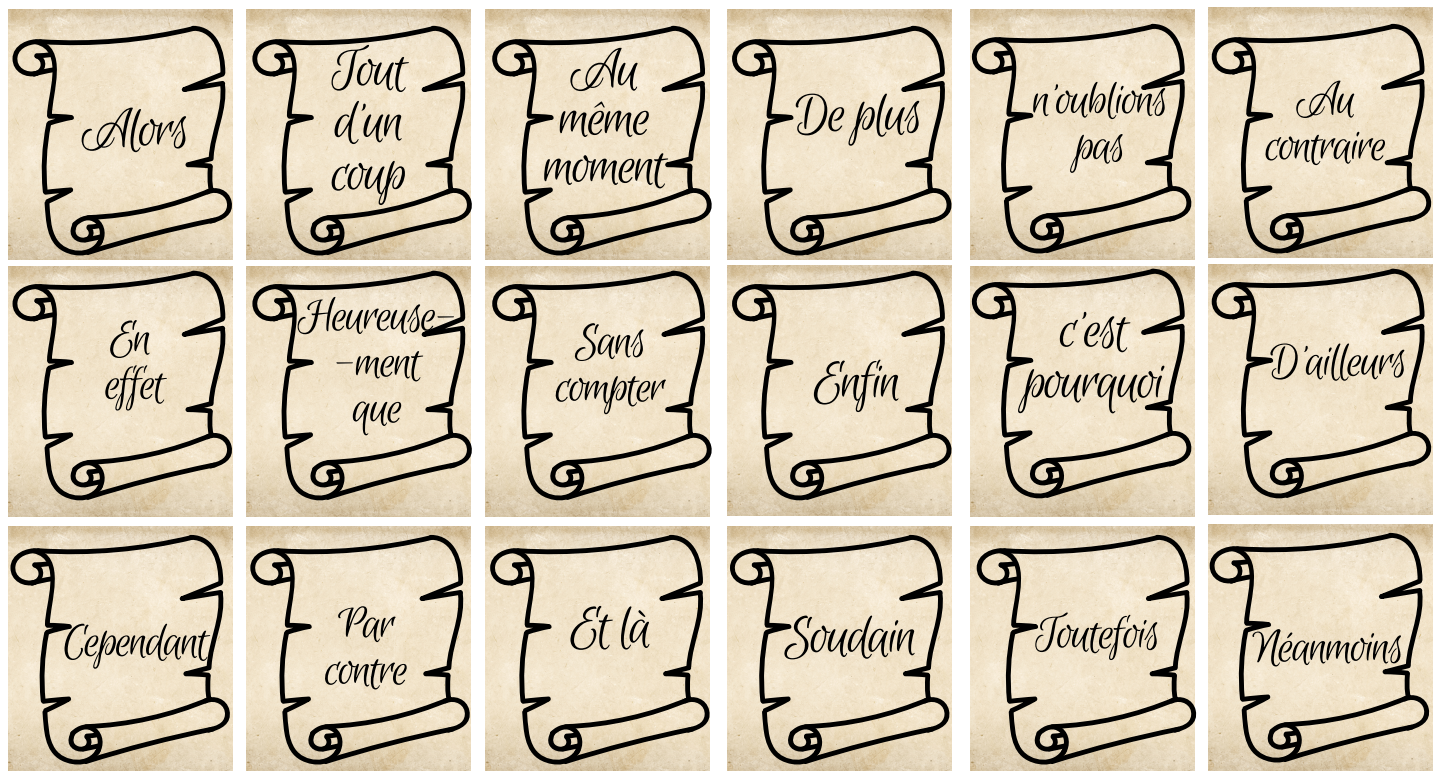 Alors
Tout
d'un
coup
Au
même
moment
De plus
n'oublions
pas
Au
contraire
En
effet
Heureuse-
-ment
que
Sans
compter
Enfin
c'est
pourquoi
D'ailleurs
Cependant
Par
contre
Et là
Soudain
Toutefois
Néanmoins